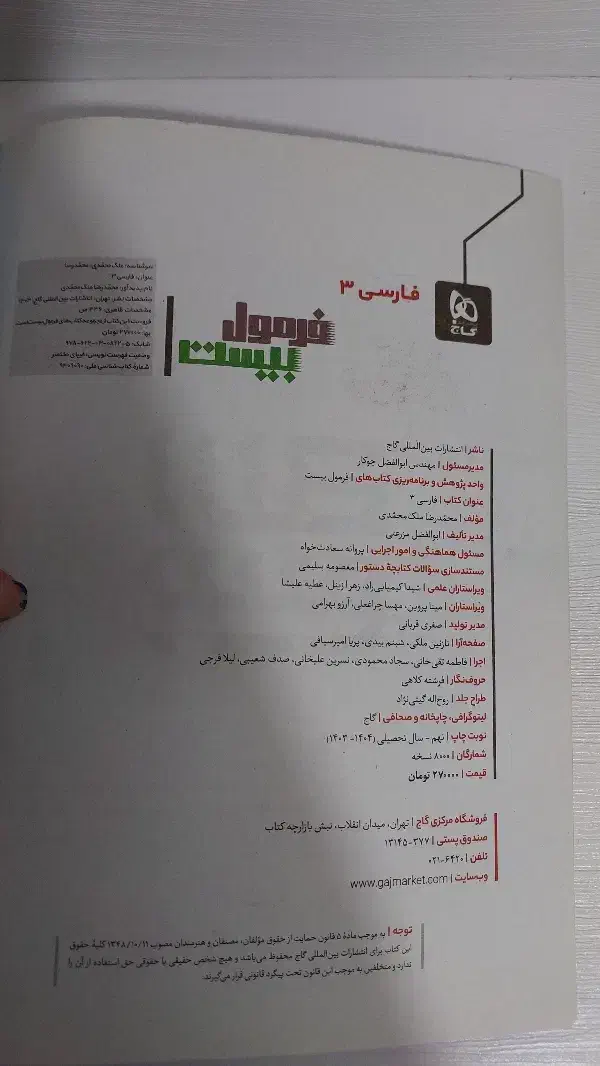 گاج
فارسی ۳
فرمول
بیست
سرشناسه: ملک محمدی، محمدرضا
عنوان: فارسی ۳
نام پدیدآور: محمدرضا ملک محمدی
مشخصات نشر: تهران: انتشارات بین‌المللی گاج
مشخصات ظاهری: ۳۳۶ ص
بها: ۲۷۰۰۰۰ تومان
وضعیت فهرست نویسی: فیپای مختصر
ناشر | انتشارات بین‌المللی گاج
مدیرمسئول | مهندس ابوالفضل جوکار
واحد پژوهش و برنامه‌ریزی کتاب‌های | فرمول بیست
عنوان کتاب | فارسی ۳
مؤلف | محمّدرضا ملک محمّدی
مدیر تألیف | ابوالفضل مزرعتی
مسئول هماهنگی و امور اجرایی | پروانه سعادت‌خواه
مستندسازی سؤالات کتابچهٔ دستور | معصومه سلیمی
ویراستاران علمی | شیدا کیمیایی‌راد، زهرا زینل، عطیه علیشا
ویراستاران | مینا پروین، مهسا چراغعلی، آرزو بهرامی
مدیر تولید | صغری قربانی
صفحه‌آرا | نازنین ملکی، شبنم بیدی، پریا امیرسیافی
اجرا | فاطمه تقی‌خانی، سجاد محمودی، نسرین علیخانی، صدف شعیبی، لیلا فرجی
حروف‌نگار | فرشته کلاهی
طراح جلد | روح‌اله گیتی‌نژاد
لیتوگرافی، چاپخانه و صحافی | گاج
نوبت چاپ | نهم - سال تحصیلی (۱۴۰۴-۱۴۰۳)
شمارگان | ۸۰۰۰ نسخه
قیمت | ۲۷۰۰۰۰ تومان
فروشگاه مرکزی گاج | تهران، میدان انقلاب، نبش بازارچه کتاب
صندوق پستی | ۳۷۷-۱۳۱۴۵
تلفن | ۶۴۲۰-۰۲۱
وب‌سایت | www.gajmarket.com
توجه | به موجب مادهٔ ۵ قانون حمایت از حقوق مؤلفان، مصنفان و هنرمندان مصوب ۱۳۴۸/۱۰/۱۱ کلیهٔ حقوق
این کتاب برای انتشارات بین‌المللی گاج محفوظ می‌باشد و هیچ شخص حقیقی یا حقوقی حق استفاده از آن را
ندارد و متخلفین به موجب این قانون تحت پیگرد قانونی قرار می‌گیرند.